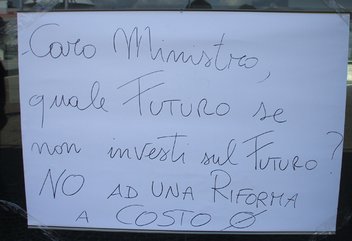 Caro Ministro,
quale FUTURO se
non investi sul FUTURO?
NO AD UNA RIFORMA
A COSTO Ø